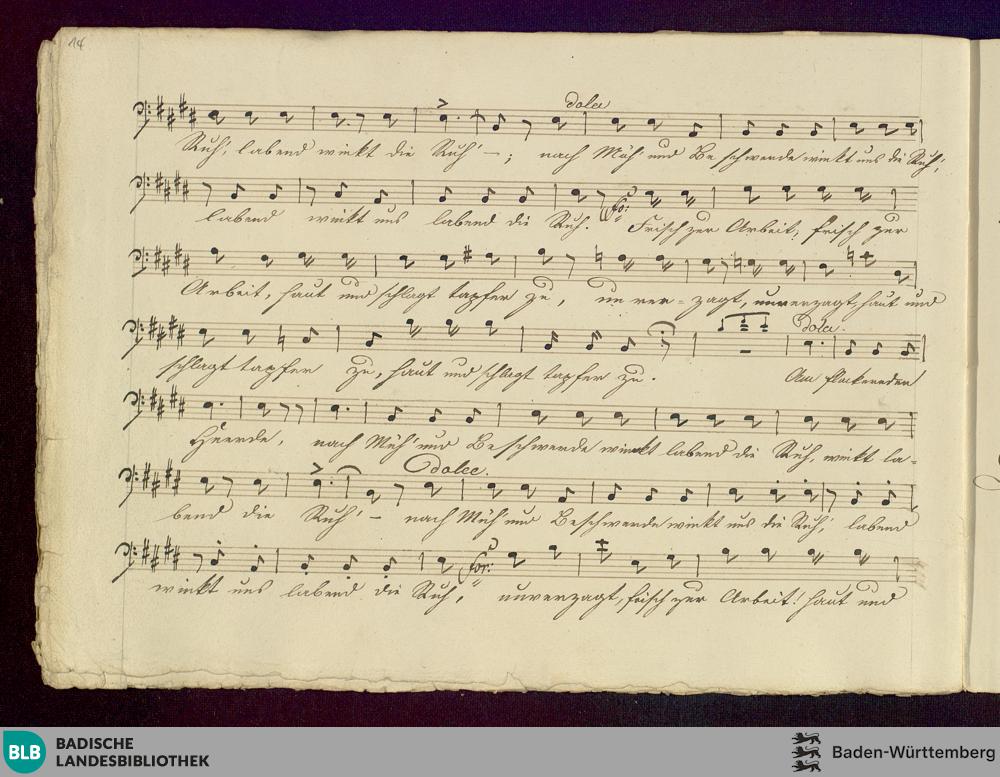 14
dolce
Ruh', labend winkt die Ruh' – ; nach Müh' und Beschwerde winkt uns die Ruh',
labend winkt uns labend die Ruh'. Frisch zur Arbeit, frisch zur
for:
Arbeit, haut und schlagt tapfer zu, unver-zagt, unverzagt, haut und
dolce.
schlagt tapfer zu, haut und schlagt tapfer zu. Am flackernden
Heerde, nach Müh' und Beschwerde winkt labend die Ruh, winkt la-
dolce.
bend die Ruh' – nach Müh' und Beschwerde winkt uns die Ruh', labend
for:
winkt uns labend die Ruh', unverzagt, frisch zur Arbeit! haut und
BLB BADISCHE
LANDESBIBLIOTHEK
Baden-Württemberg